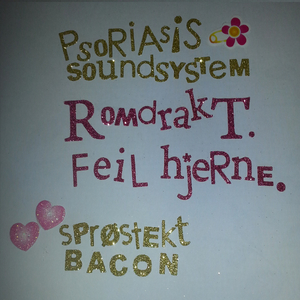 PSORiASiS
SOUNDSYSTEM
ROMdrakT.
FEiL hjERNE.
SPRØSTEKT
BACON